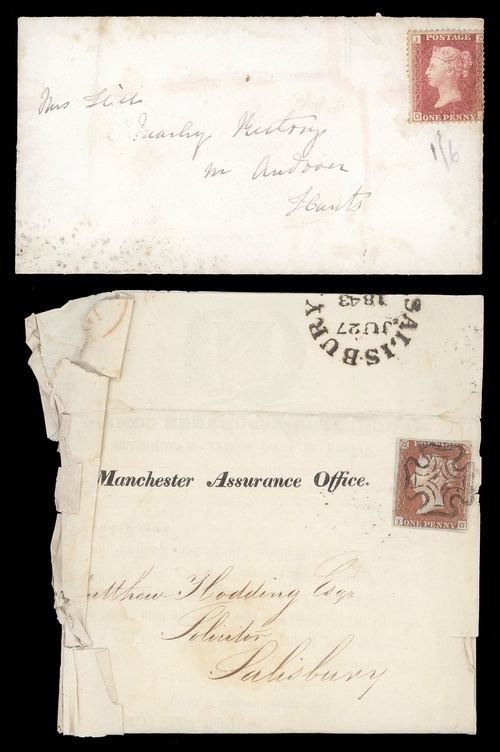 POSTAGE
ONE PENNY
Mrs
nr Andover
Hants
1/6
SALISBURY
JU 27
1843
Manchester Assurance Office.
ONE PENNY
Matthew Hodding Esqr
Solicitor
Salisbury